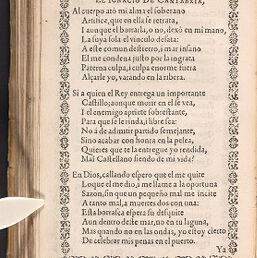 EL IGNACIO DE CANTABRIA,
Al cuerpo atò mi alma el soberano
Artifice, que en ella se retrata,
I aunque el borrarla, o no, dexò en mi mano,
La suya sola el vinculo desata:
A este comun destierro, i mar insano
El me condena justo por la ingrata
Paterna culpa, i culpa enorme fuera
Alçarle yo, varando en la ribera.
Si a quien el Rey entrega un importante
Castillo; aunque morir en el se vea,
I el enemigo apriete sobrestante,
Para que se le rinda, i libre sea:
No à de admitir partido semejante,
Sino acabar con honra en la pelea,
Quieres que te la entregue yo rendida,
Mal Castellano siendo de mi vida?
En Dios, callando espero que el me quite
Lo que el me dio, i me llame a la oportuna
Sazon, sin que un pequeño mal me incite
A tanto mal, a muertes dos con una:
Esta borrasca espera su desquite
Aun dentro deste mar, no en tu laguna,
Mas quando no en las ondas, yo estoy cierto
De celebrar mis penas en el puerto.
Ya